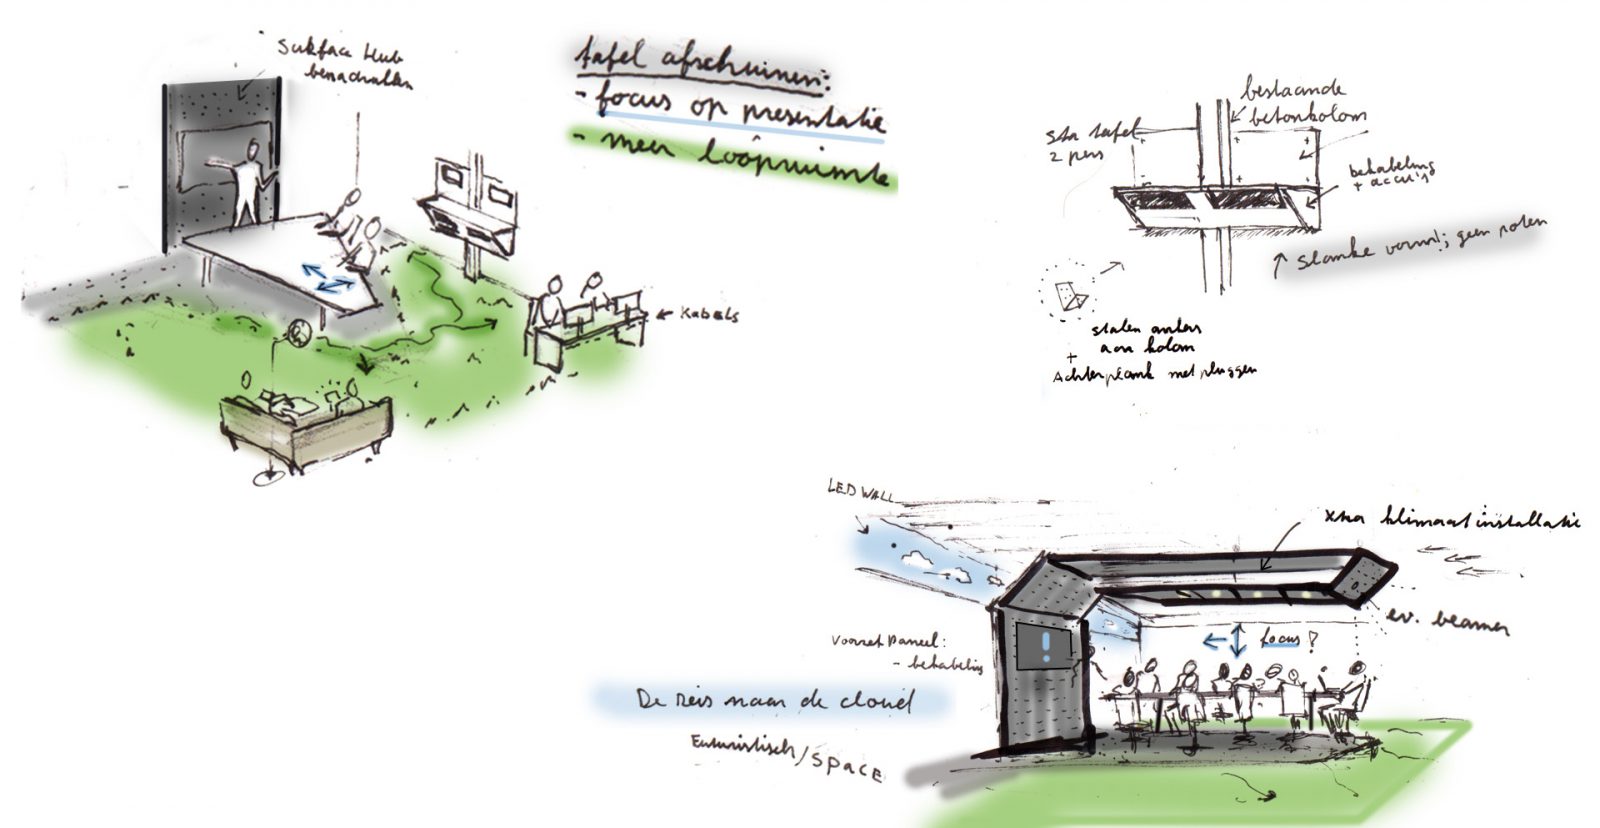 Surface Hub
benadrukken
tafel afschuinen:
- focus op presentatie
- meer loopruimte
Kabels
bestaande
betonkolom
sta tafel
2 pers
bekabeling
+ accu's
slanke vorm; geen poten
stalen ankers
aan kolom
+
Achterplank met pluggen
LED WALL
Xtra klimaatinstallatie
ev. beamer
focus!
Voorzet Paneel:
- bekabeling
De reis naar de cloud
Futuristisch/SPACE